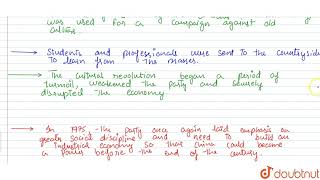 was used for a campaign against old
→ Students and professionals were sent to the countryside
to learn from the masses.
→ The cultural revolution began a period of
turmoil, weakened the party and severely
disrupted the economy
→ In 1975 the party once again laid emphasis on
greater social discipline and need to build an
industrial economy so that china could become
a power before the end of the century.
doubtnut